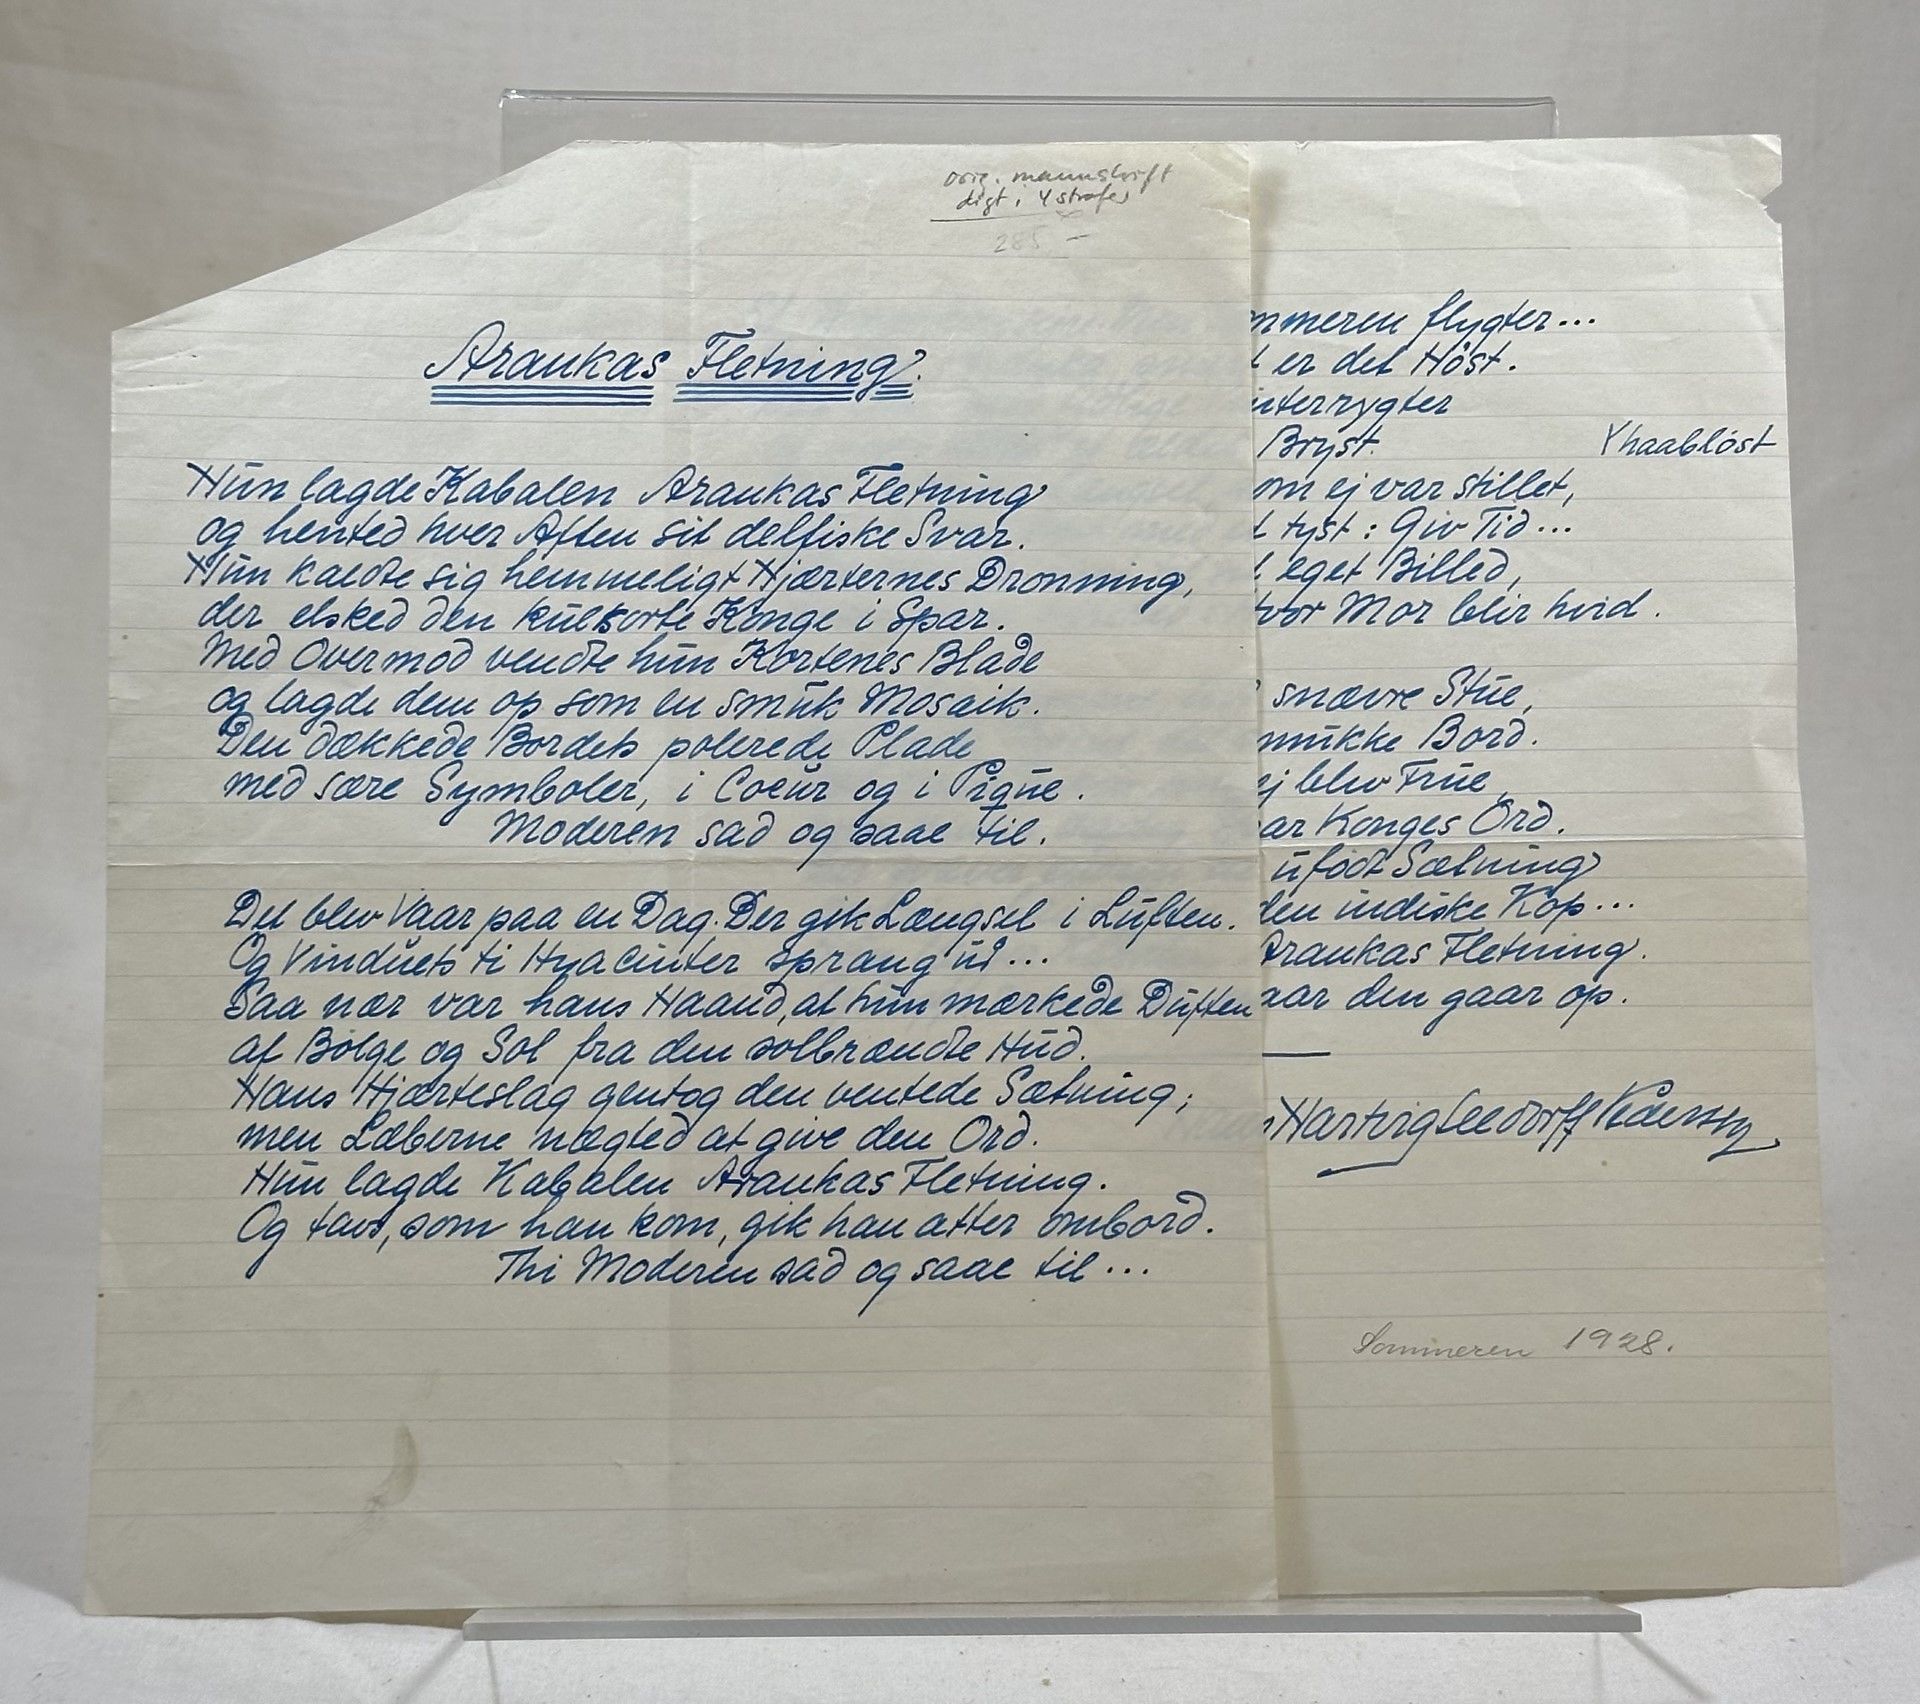 orig. manuskrift
digt i 4 strofer
285 -
Araukas Fletning.
Hun lagde Kabalen Araukas Fletning
og hented hver Aften sit delfiske Svar.
Hun kaldte sig hemmeligt Hjærternes Dronning,
der elsked den kulsorte Konge i Spar.
Med Overmod vendte hun Kortenes Blade
og lagde dem op som en smuk Mosaik.
Den dækkede Bordets polerede Plade
med sære Symboler, i Coeur og i Pique.
Moderen sad og saae til.
Det blev Vaar paa en Dag. Der gik Længsel i Luften.
Og Vinduets ti Hyacinter sprang ud...
Saa nær var hans Haand, at hun mærkede Duften
af Bølge og Sol fra den solbrændte Hud.
Hans Hjærteslag gentog den ventede Sætning;
men Læberne nægted at give den Ord.
Hun lagde Kabalen Araukas Fletning.
Og tavs, som han kom, gik han atter ombord.
Thi Moderen sad og saae til...
mmeren flygter...
t er det Høst.
interrygter
Bryst. haabløst
om ej var stillet,
t tyst: Giv Tid...
t eget Billed,
vor Mor blir hvid.
snævre Stue,
mukke Bord.
ej blev Frue,
ar Konges Ord.
ufødt Sætning
den indiske Kop...
Araukas Fletning.
aar den gaar op.
Hartvig Seedorff Pedersen
Sommeren 1928.